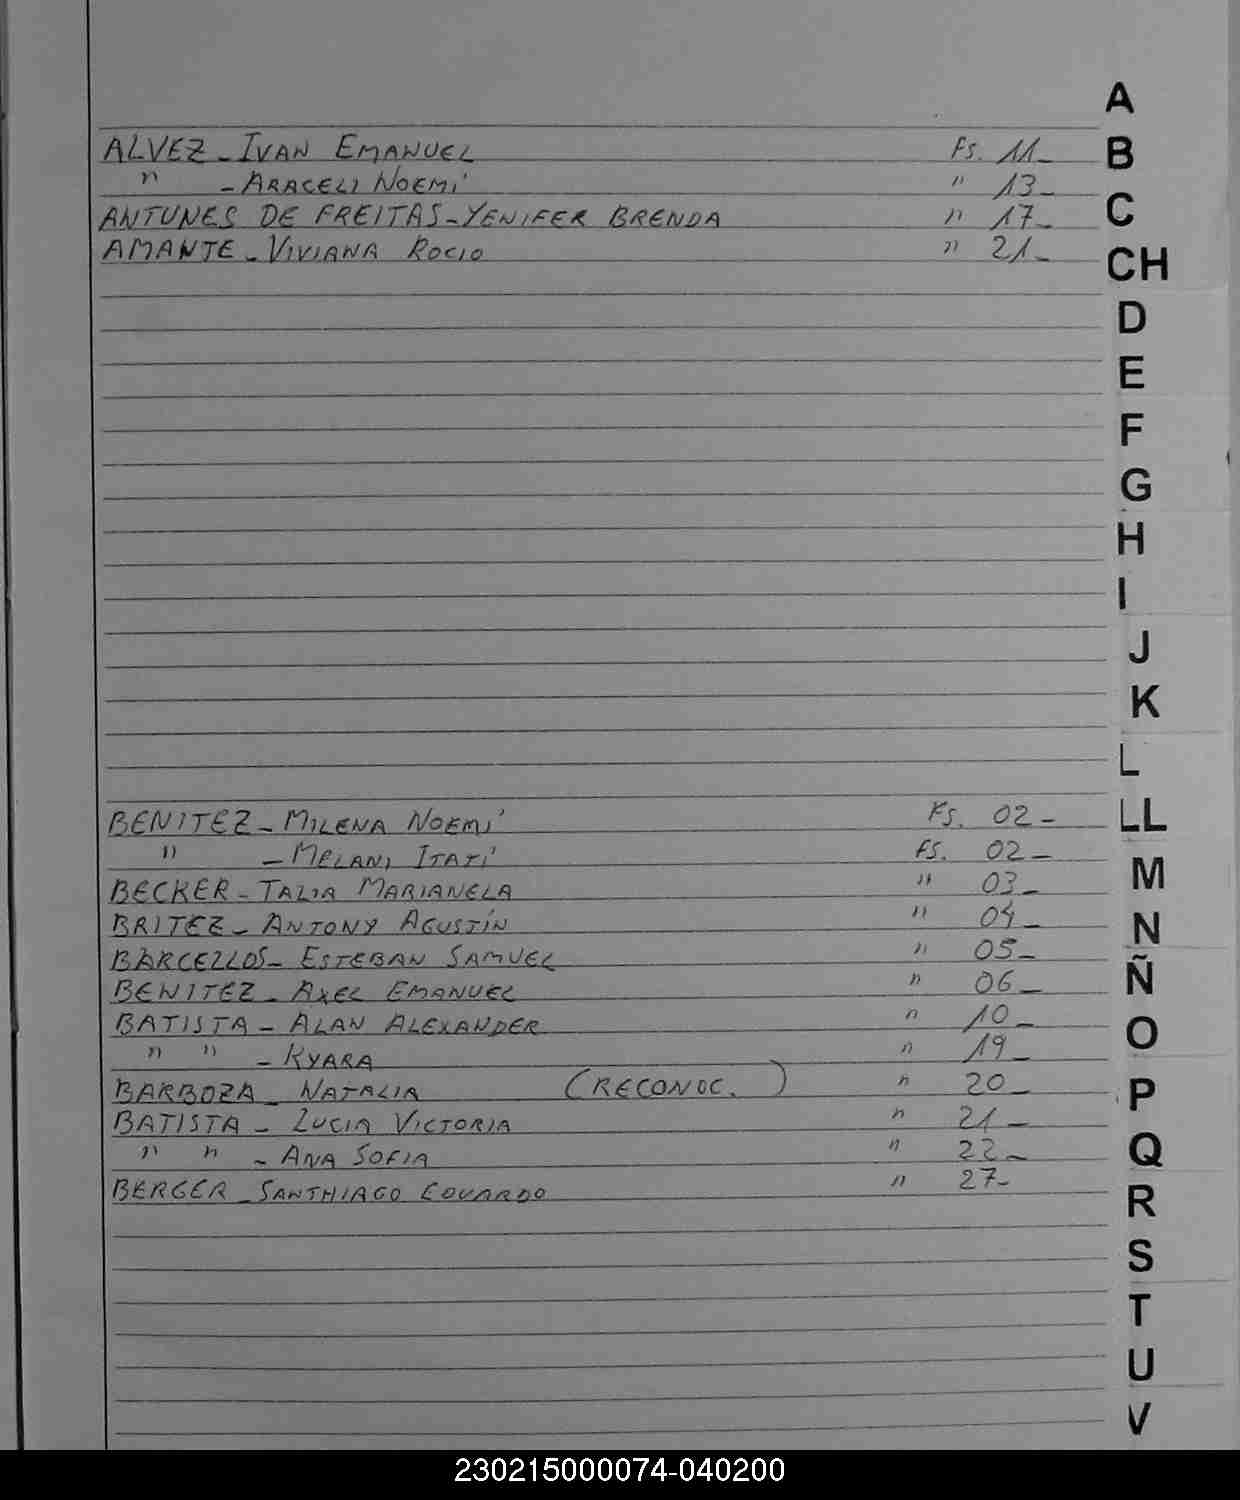 A
ALVEZ - IVAN EMANUEL Fs. 11-
B
" - ARACELI NOEMÍ " 13-
ANTUNES DE FREITAS - YENIFER BRENDA " 17-
C
AMANTE - VIVIANA ROCIO " 21-
CH
D
E
F
G
H
I
J
K
L
BENITEZ - MILENA NOEMÍ Fs. 02-
LL
" - MELANI ITATÍ FS. 02-
M
BECKER - TALIA MARIANELA " 03-
BRITEZ - ANTONY AGUSTÍN " 04-
N
BARCELLOS - ESTEBAN SAMUEL " 05-
Ñ
BENITEZ - AXEL EMANUEL " 06-
BATISTA - ALAN ALEXANDER " 10-
O
" " - KYARA " 19-
BARBOZA - NATALIA (RECONOC. ) " 20-
P
BATISTA - LUCIA VICTORIA " 21-
" " - ANA SOFIA " 22-
Q
BERGER - SANTHIAGO EDUARDO " 27-
R
S
T
U
V
230215000074-040200